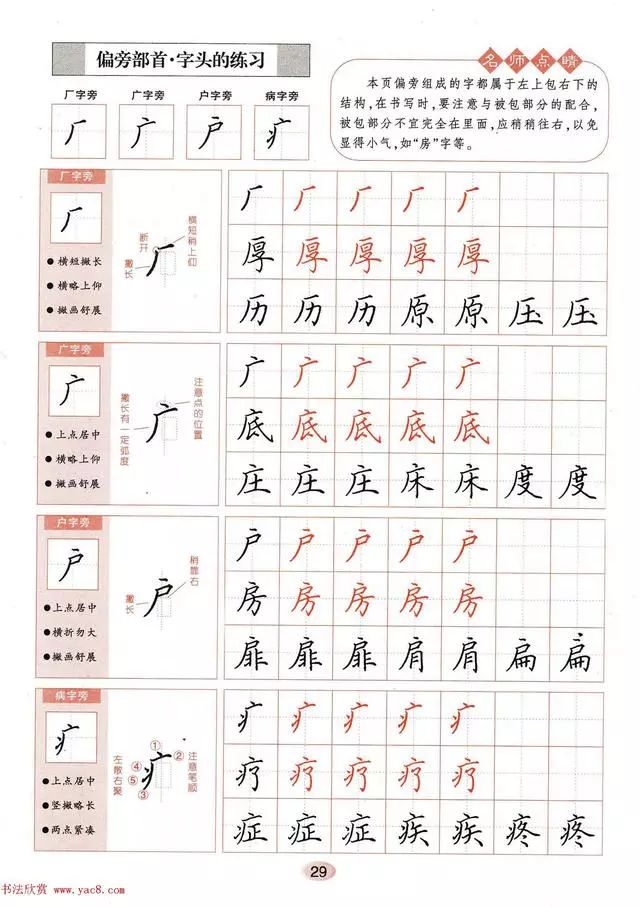 偏旁部首·字头的练习
名师点睛
厂字旁 广字旁 户字旁 病字旁
厂 广 户 疒
本页偏旁组成的字都属于左上包右下的
结构,在书写时,要注意与被包部分的配合,
被包部分不宜完全在里面,应稍稍往右,以免
显得小气,如“房”字等。
厂字旁
厂
●横短撇长
●横略上仰
●撇画舒展
横短稍上仰
断开
撇长
厂
厂 厂 厂 厂 厂
厚 厚 厚 厚 厚
历 历 历 原 原 压 压
广字旁
广
●上点居中
●横略上仰
●撇画舒展
注意点的位置
撇长有一定弧度
广
广 广 广 广 广
底 底 底 底 底
庄 庄 庄 床 床 度 度
户字旁
户
●上点居中
●横折勿大
●撇画舒展
稍靠右
撇长
户
户 户 户 户 户
房 房 房 房 房
扉 扉 扉 肩 肩 扁 扁
病字旁
疒
●上点居中
●竖撇略长
●两点紧凑
注意笔顺
左散右聚
① ② ④ ⑤ ③
疒
疒 疒 疒 疒 疒
疗 疗 疗 疗 疗
症 症 症 疾 疾 疼 疼
29
书法欣赏
www.yac8.com